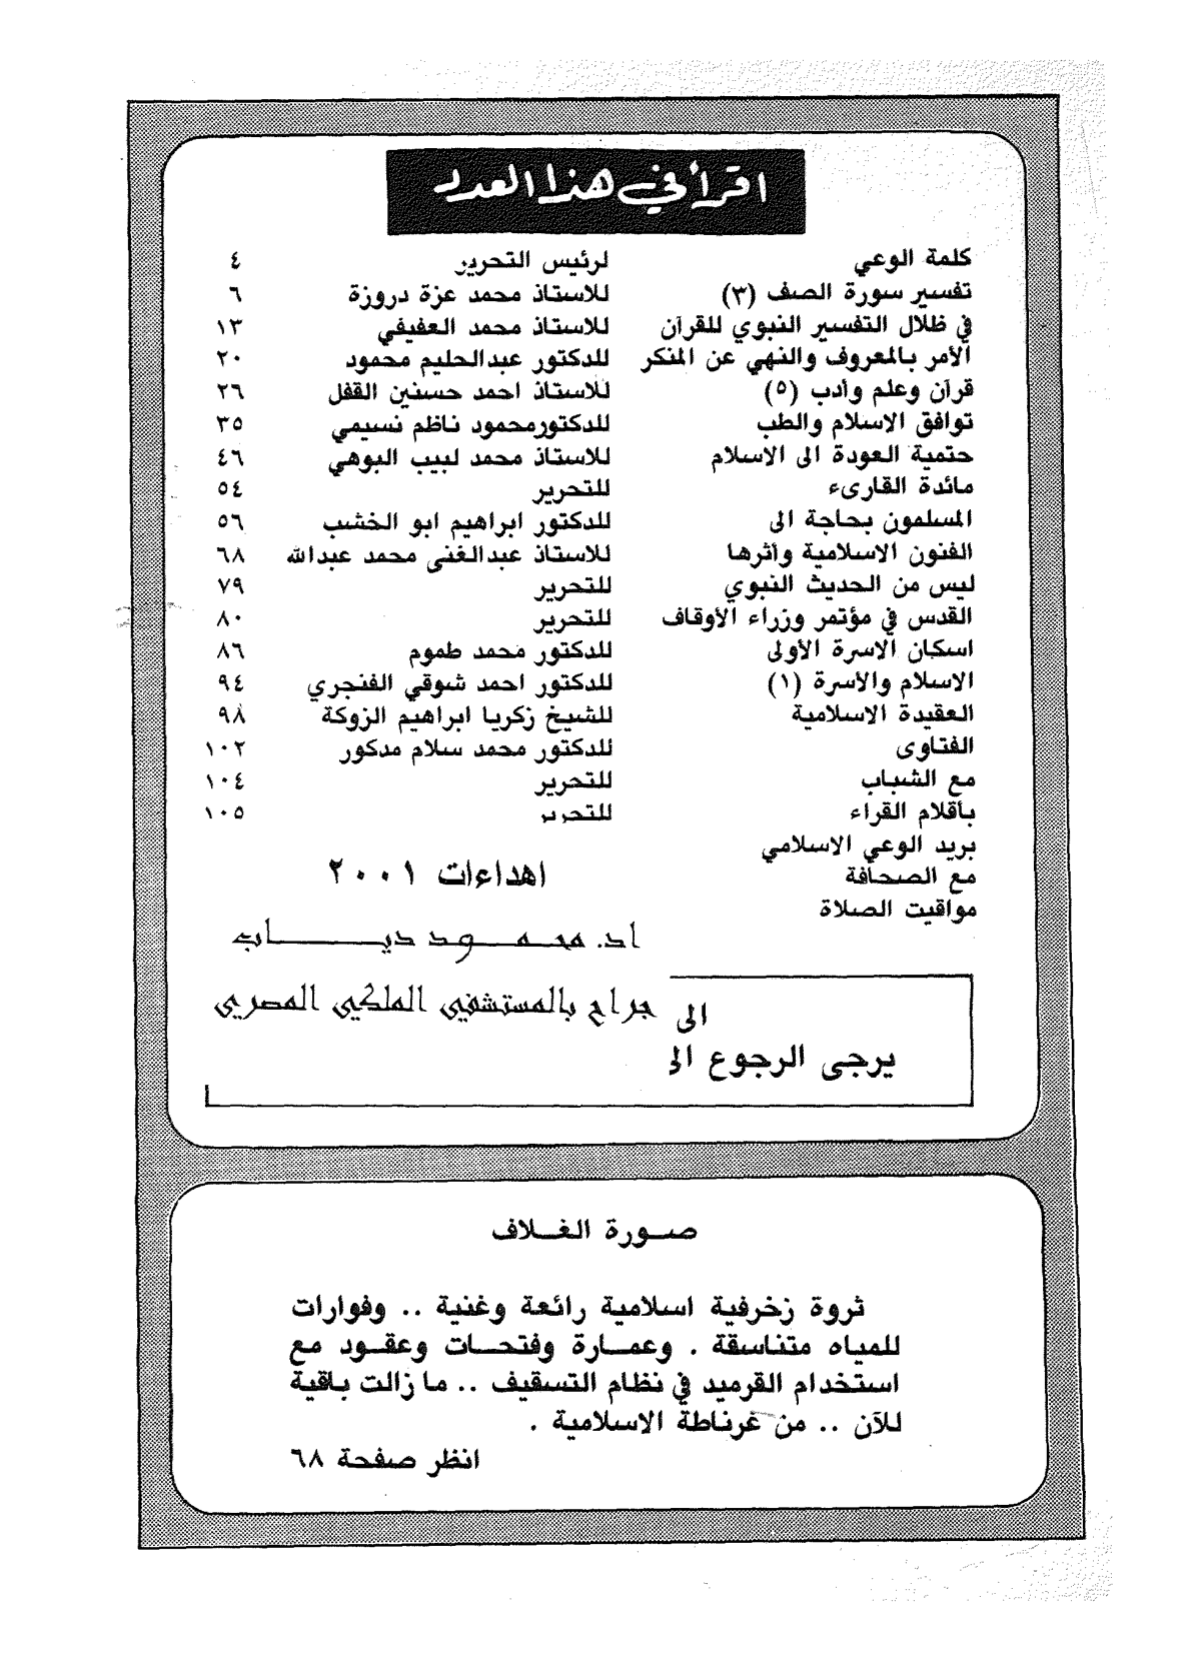 اقرأ في هذا العدد
كلمة الوعي لرئيس التحرير ٤
تفسير سورة الصف (٣) للاستاذ محمد عزة دروزة ٦
في ظلال التفسير النبوي للقرآن للاستاذ محمد العفيفي ١٣
الأمر بالمعروف والنهي عن المنكر للدكتور عبدالحليم محمود ٢٠
قرآن وعلم وأدب (٥) للاستاذ احمد حسنين القفل ٢٦
توافق الاسلام والطب للدكتورمحمود ناظم نسيمي ٣٥
حتمية العودة الى الاسلام للاستاذ محمد لبيب البوهي ٤٦
مائدة القارىء للتحرير ٥٤
المسلمون بحاجة الى للدكتور ابراهيم ابو الخشب ٥٦
الفنون الاسلامية وأثرها للاستاذ عبدالغنى محمد عبدالله ٦٨
ليس من الحديث النبوي للتحرير ٧٩
القدس في مؤتمر وزراء الأوقاف للتحرير ٨٠
اسكان الاسرة الأولى للدكتور محمد طموم ٨٦
الاسلام والأسرة (١) للدكتور احمد شوقي الفنجري ٩٤
العقيدة الاسلامية للشيخ زكريا ابراهيم الزوكة ٩٨
الفتاوى للدكتور محمد سلام مدكور ١٠٢
مع الشباب للتحرير ١٠٤
بأقلام القراء للتحرير ١٠٥
بريد الوعي الاسلامي
مع الصحافة
مواقيت الصلاة
اهداءات ٢٠٠١
اد. محمود دياب
جراح بالمستشفي الملكي المصري
الى
يرجى الرجوع الى
صورة الغلاف
ثروة زخرفية اسلامية رائعة وغنية .. وفوارات
للمياه متناسقة . وعمارة وفتحات وعقود مع
استخدام القرميد في نظام التسقيف .. ما زالت باقية
للآن .. من غرناطة الاسلامية .
انظر صفحة ٦٨